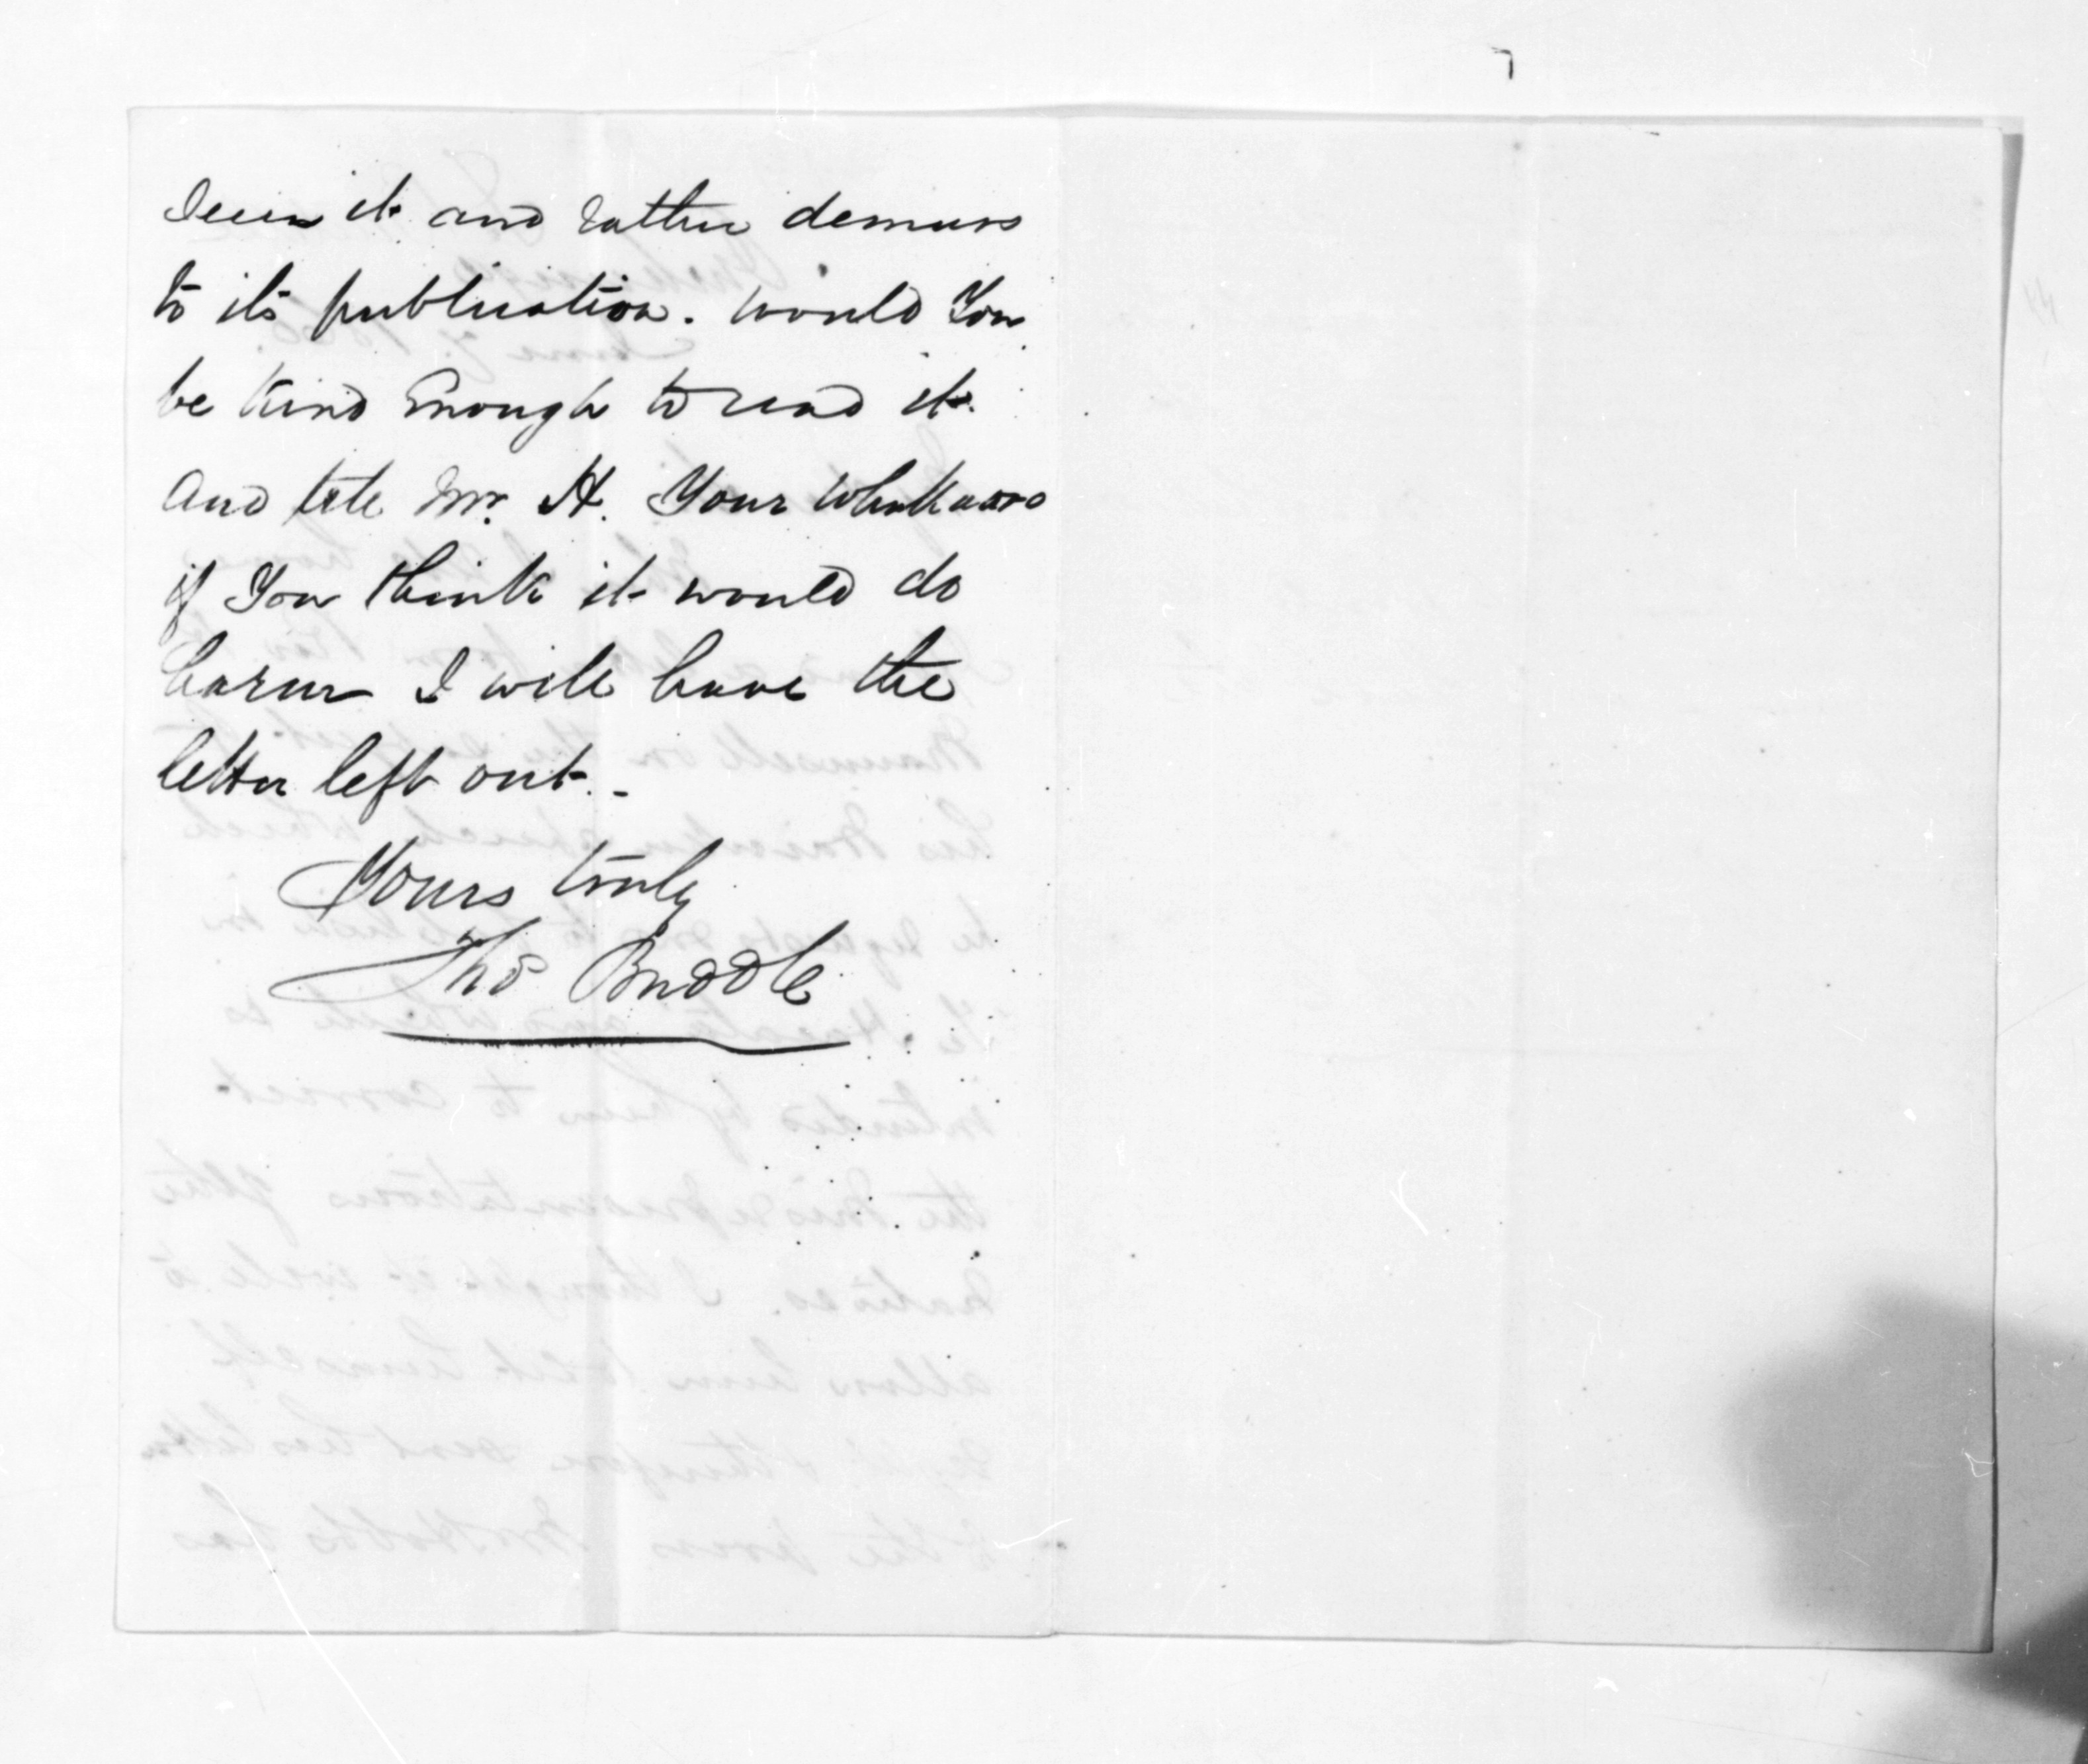 seen it and rather demurs
to its publication. Would You
be kind Enough to read it
and tell Mr. H. Your Whakaaro
if You think it would do
harm I will have the
letter left out. -
Yours truly
Thos Buddle